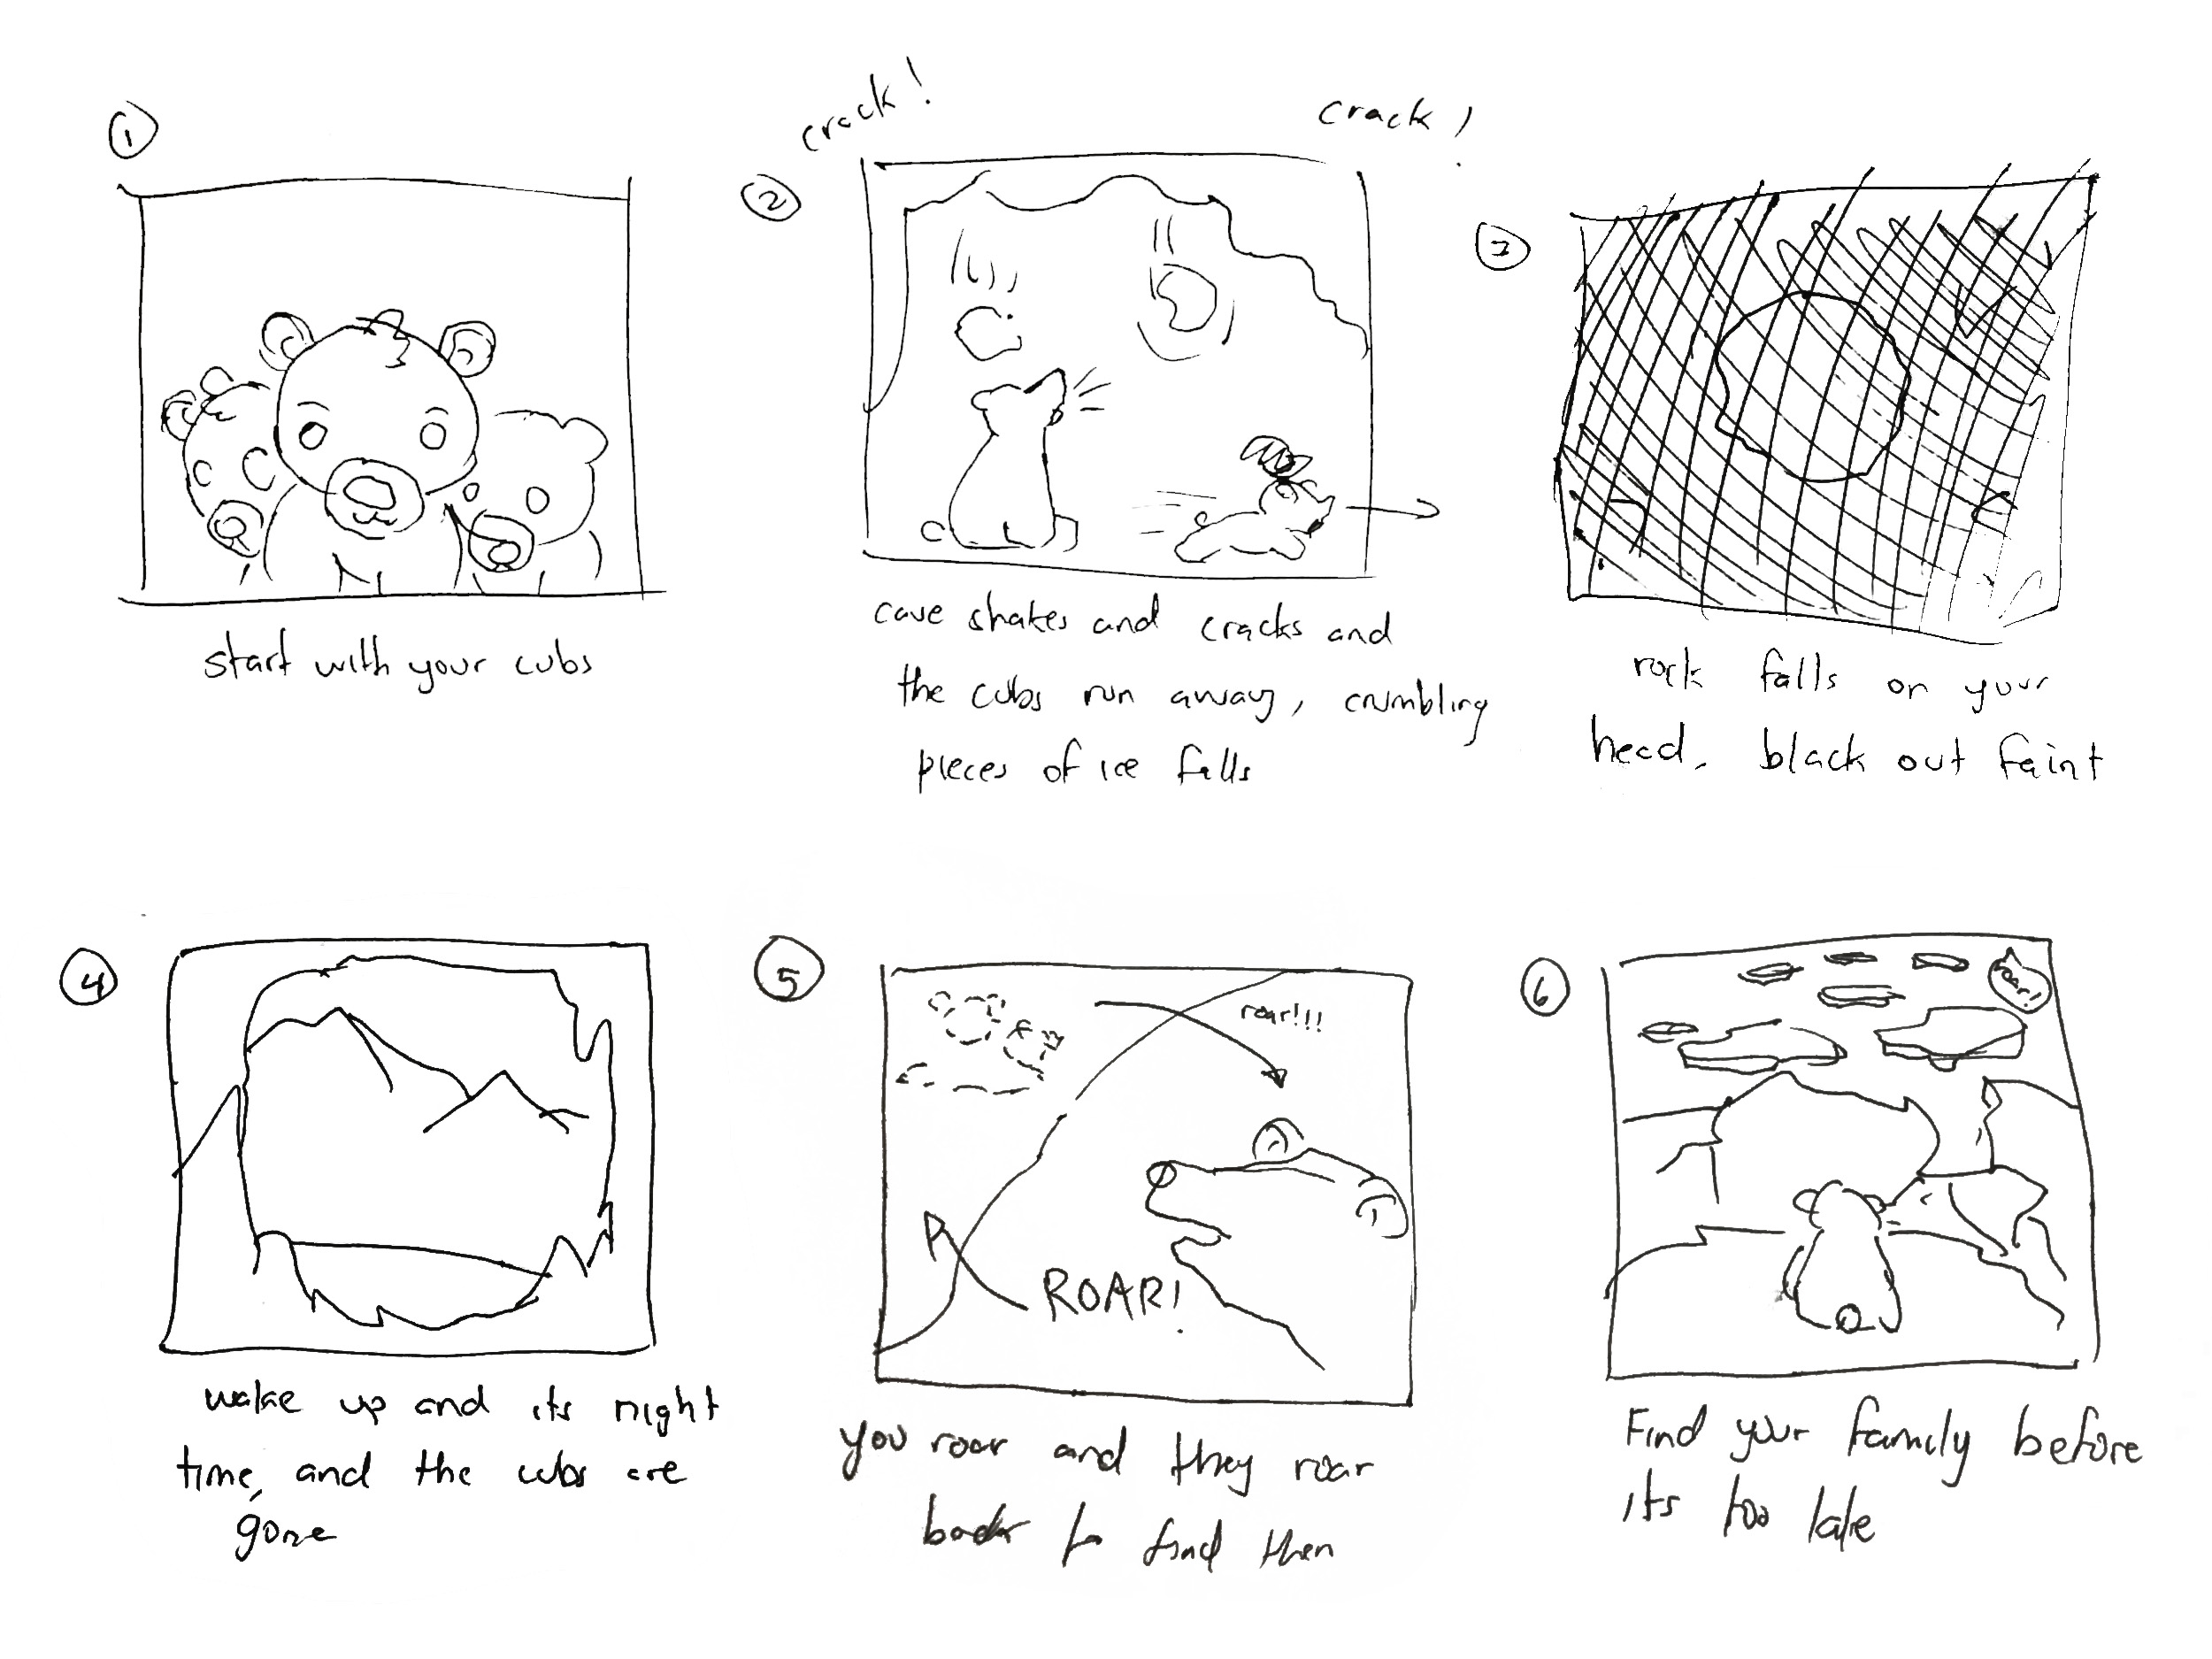 1
start with your cubs
crack!
crack!
2
cave shakes and cracks and
the cubs run away, crumbling
pieces of ice falls
3
rock falls on your
head. black out faint
4
wake up and its night
time, and the cubs are
gone
5
roar!!!
ROAR!
you roar and they roar
back to find them
6
Find your family before
its too late